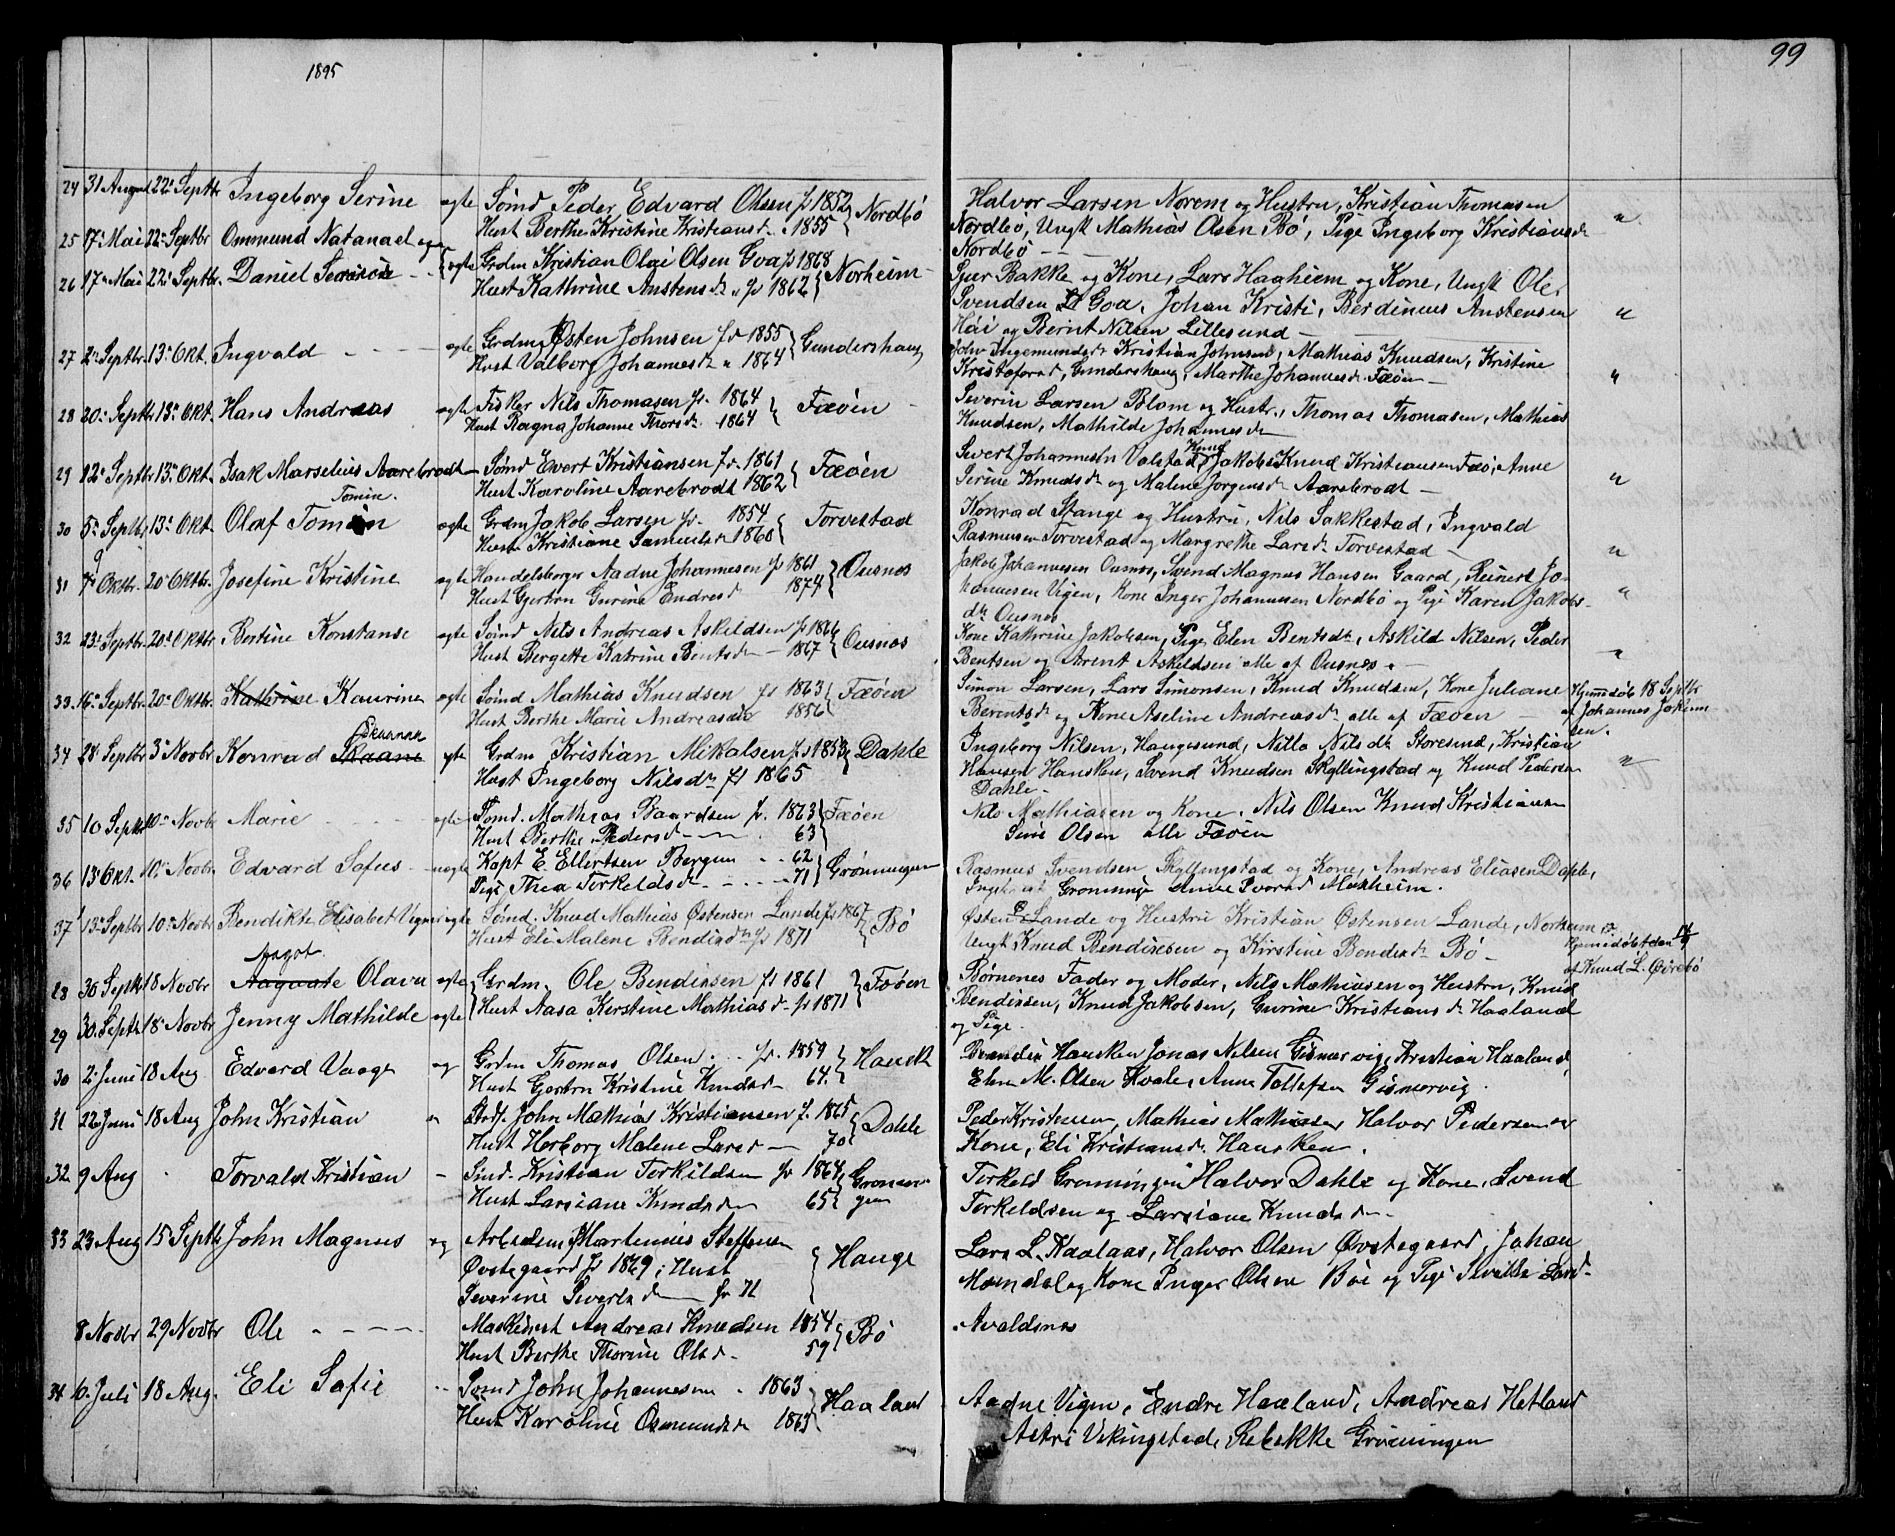 99
1895
24 31 August 22 Septbr Ingeborg Serine ægte Sømd Peder Edvard Olsen f 1852 Nordbö
Hust Berthe Kristine Kristiansd. 1855
25 17 Mai 22 Septbr Ommund Natanael og
26 17 Mai 22 Septbr. Daniel ægte Grdm Kristian Olai Olsen Goa f 1868 Norheim
Hust Kathrine Anstensd. f 1862
27 2 Septbr. 13 Okt. Ingvald ægte Grdm Østen Johnsen f. 1855 Gundershaug
Hust Valborg Johannesd. 1864
28 20 Septbr 13 Okt. Hans Andreas ægte Fisker Nils Thomasen f. 1864 Fæøen
Hust Ragna Johanne Thorsd. 1864
29 12 Septbr 13 Okt. Isak Marselius Aarebrodt Sømd Evert Kristiansen f. 1861 Fæøen
Hust Karoline Aarebrodt 1862
Tomin.
30 5 Septbr 13 Okt. Olaf Tomin ægte Grdm Jakob Larsen f. 1854 Torvestad
Hust Kristiane Samuelsd. 1860
31 7 Oktbr. 20 Oktbr. Josefine Kristine ægte Handelsborger Aadne Johannesen f 1861 Ousnes
Hust Gjertru Gurine Endresd 1874
32 23 Septbr. 20 Oktbr Bertine Konstanse ægte Sømd Nils Andreas Askildsen f 1866 Ousnes
Hust Bergette Katrine Bentsd. 1867
33 16 Septbr. 20 Oktbr. Kathrine Kaurine ægte Sømd Mathias Knudsen f 1863 Fæøen
Hust Berthe Marie Andreasd. 1856
Skaanan
34 28 Septbr 3 Novbr Konrad Skaane ægte Grdm Kristian Mikalsen f. 1853 Dahle
Hust Ingeborg Nilsd. f 1865
35 10 Septbr 10 Novbr Marie ægte Sömd. Mathias Baardsen f. 1863 Fæøen
Hust Berthe Pedersd 63
36 13 Okt. 10 Novbr. Edvard Sofus uægte Kapt E Ellertsen Bergen 62 Grønningen
Pige Thea Torkeldsd. 71
37 13 Septbr 10 Novbr Bendikte Elisabet ægte Sømd. Knud Mathias Østensen Lande f 1867 Bö
Hust Eli Malene Bendixdr f 1871
Aagot.
28 30 Septbr 18 Novbr Olava ægte Grdm. Ole Bendixsen f 1861 Fæøen
Hust Aasa Kerstine Mathiasd. f 1871
29 30. Septbr 18 Novbr Jenny Mathilde ægte
30 2 Juni 18 Aug Edvard Vaage æg Grdm Thomas Olsen f. 1859 Hauske
Hust Gjertru Kristine Knudsd. 64.
31 22 Juni 18 Aug John Kristian Strdf. John Mathias Kristiansen f. 1865 Dahle
Hust Herborg Malene Larsd. 70
32 9 Aug Torvald Kristian Kristian Torkildsen f. 1864 Gronningen
Hust Larsiane Knudsd. 65
33 23 Aug 15 Septbr John Magnus æg Arbeidsm Martinius Steffensen
Øvstegaard f 1869; Hust Hauge
Severine Sivertsd. f. 71
8 Novbr 29 Novbr Ole Maskinist Andreas Knudsen 1854 Bö
Hust Berthe Thorine Olsd. 59
34 6. Juli 18 Aug. Eli Sofie Sömd John Johannesen 1863 Haaland
Hust Karoline Osmundsd. 1863
Halvor Larsen Norem og Hustru, Kristian Thomasen
Nordbö, Ungk Mathias Olsen, Bö, Pige Ingeborg Kristiansd.
Nordbö
Sjur Bakke og Kone, Lars Haaheim og Kone, Ungk Ole
Svendsen Goa, Johan Kristi, Berdinus Anstensen
og Bernt Nilsen Lillesund
Ingemundsd. Kristian Johnsen, Mathias Knudsen, Kristine
Kristofersd, Gundershaug, Marthe Johannesd. Fæøen
Severin Larsen Blom og Hustr., Thomas Thomasen, Mathias
Knudsen, Mathilde Johannesd
Sivert Johannesen Valstad, Jakobs Knud Kristiansen Fæø, Anne
Serine Knudsd. og Malene Jorgensd. Aarebrodt
Konrad Stange og Hustru, Nils Sakkestad, Ingvald
Rasmusen Torvestad og Margrethe Larsd. Torvestad
Jakob Johannesen Ousnes, Svend Magnus Hansen Gaard, Reinert Jo-
hannesen Vigen, Kone Inger Johannesen Nordbö og Pige Karen Jakobs-
dtr Ousnes
Kone Kathrine Jakobsen, Pige Elen Bentsdtr., Askild Nilsen, Peder
Bentsen og Arent Askildsen alle af Ousnes.
Simon Larsen, Lars Simonsen, Knud Knudsen, Kone Juliane Hjemdøbt 18 Septbr
Berentsd. og Kone Aseline Andreasd. alle af Fæøen af Johannes Jokum
sen.
Ingeborg Nilsen, Haugesund, Nilla Nilsdtr. Storesund, Kristian
Hansen Hausken, Svend Knudsen Skyllingstad og Knud Pedersen
Dahle.
Nils Mathiasen og Kone, Nils Olsen Knud Kristiansen
Sine Olsen alle Fæøen
Rasmus Svendsen, Skyllingstad og Kone, Andreas Eliasen Dahle,
Anne Ivarsd Mæxheim.
Østen Lande og Hustru Kristian Østensen Lande, Norheim
Ungk Knud Bendixsen og Kirstine Bendixd. Bö Hjemmdöbt den
af Knud L. Ørebö
Børnenes Fader og Moder, Nils Mathiasen og Hustru, Knud
Bendixsen, Knud Jakobsen, Gurine Kristiansd. Haaland
og Pige.
Hausken Jonas Nilsen Gismervig, Kristian Haaland,
Elen M. Olsen Kvale, Anne Tollefsen Gismervig.
Peder Kristensen, Mathias Mathiasen Halvor Pedersen og
Kone, Eli Kristiansd. Hausken.
Torkeld Gronningen Halvor Dahle og Kone, Svend
Torkeldsen og Larsiane Knudsd.
Lars L. Kaalaas, Halvor Olsen Øvstegaard, Johan
Mændal og Kone Inger Olsen Böe og Pige
Avaldsnes
Aadne Vigen, Endre Haaland, Andreas Hetland
Astri Vikingstad, Rebekke Gronningen